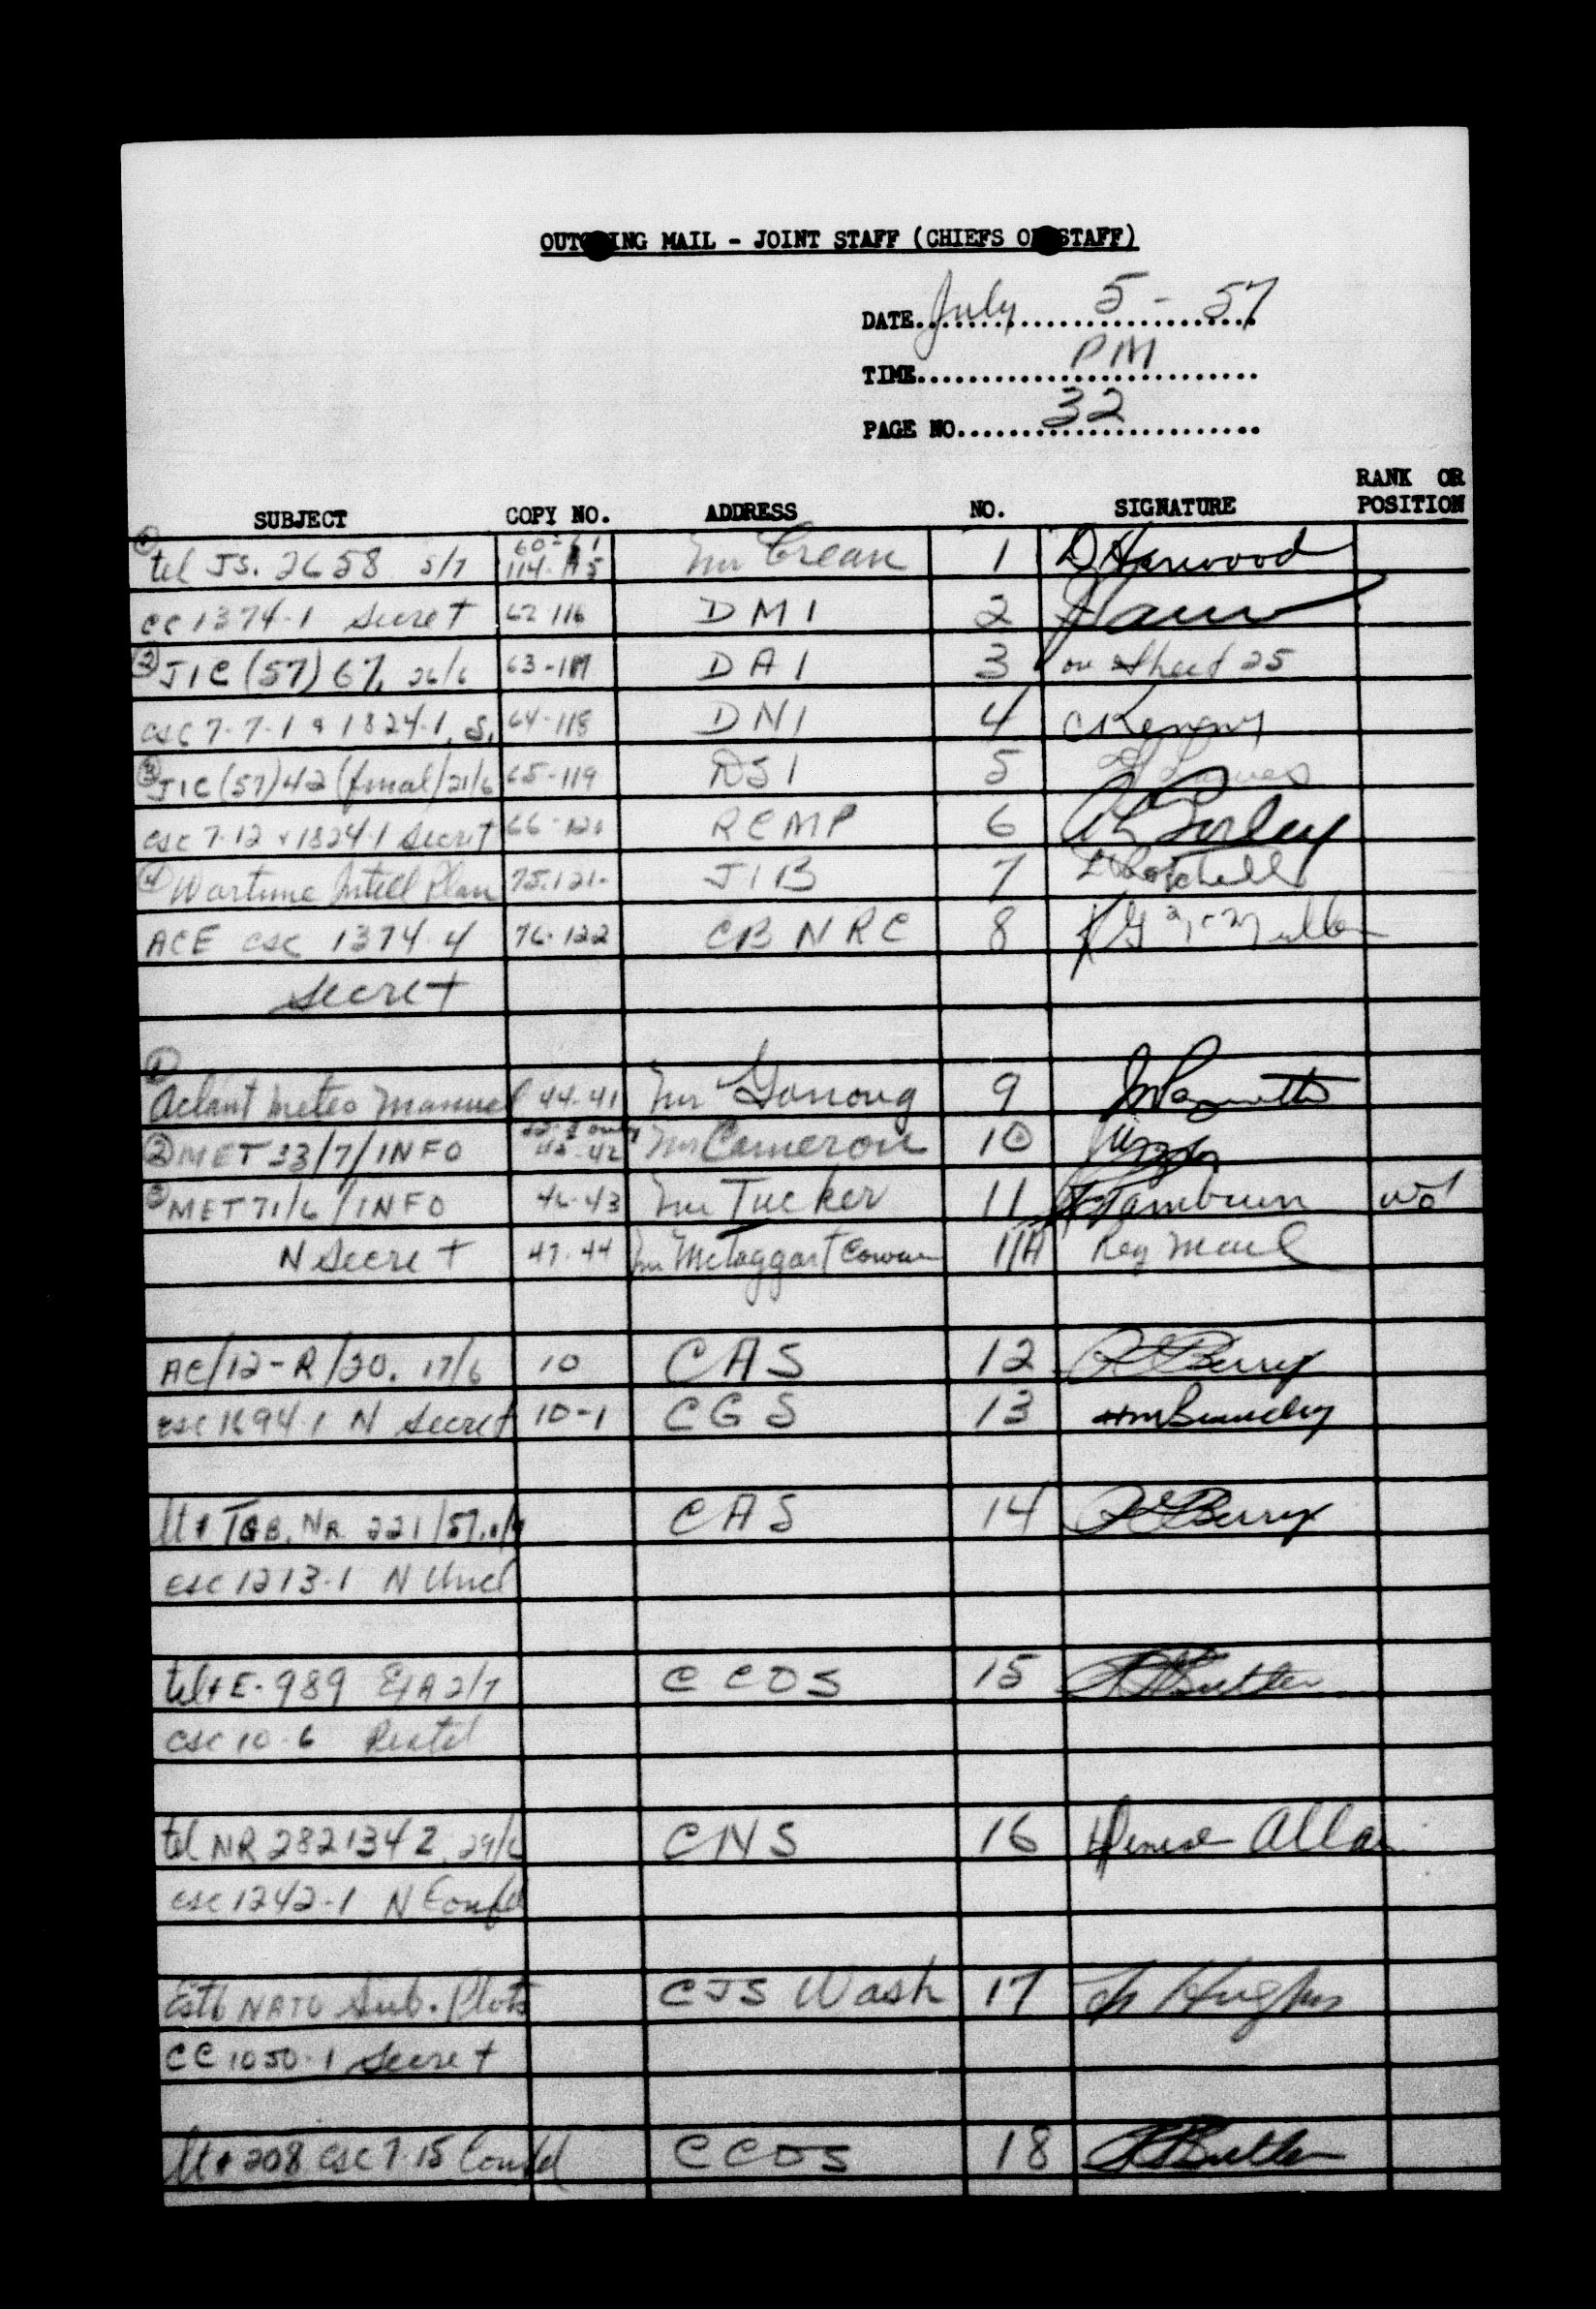 OUTGOING MAIL - JOINT STAFF (CHIEFS OF STAFF)
DATE July 5 - 57
TIME PM
PAGE NO. 32
SUBJECT COPY NO. ADDRESS NO. SIGNATURE RANK OR POSITION
① tel JS. 2658 5/7 60-61 114-115 Mr Crean 1 D Harwood
CC 1374-1 Secret 62 116 DMI 2
② JIC (57) 67, 26/6 63-117 DAI 3 on Sheet 25
CSC 7-7-1 & 1824-1, S. 64-118 DNI 4 C Kenny
③ JIC (57) 42 (final) 21/6 65-119 DSI 5
CSC 7-12 & 1824-1 Secret 66-120 RCMP 6
④ Wartime Intell Plan 75-121- JIB 7
ACE CSC 1374-4 76-122 CB NRC 8
Secret
① Aclant Meteo Manual 44-41 Mr 9
② MET 33/7/INFO 42 Mr Cameron 10
③ MET 71/6/INFO 46-43 Mr Tucker 11 WO1
N Secret 47-44 Mr McTaggart Cowan 11A Reg Mail
AC/12-R/20. 17/6 10 CAS 12 Berry
CSC 1694-1 N Secret 10-1 CGS 13
lt & TGB. NR. 221/57. CAS 14 Berry
CSC 1213-1 N Uncl
tel & E-989 ExA 2/7 CCOS 15 Butler
CSC 10-6 Restd
tel NR 282134Z, 29/6 CNS 16 Denise Allan
CSC 1242-1 N Confd
Estb NATO Sub. Plots CJS Wash 17 Hughes
CC 1050-1 Secret
lt & 208 CSC 7-15 Confd CCOS 18 Butler